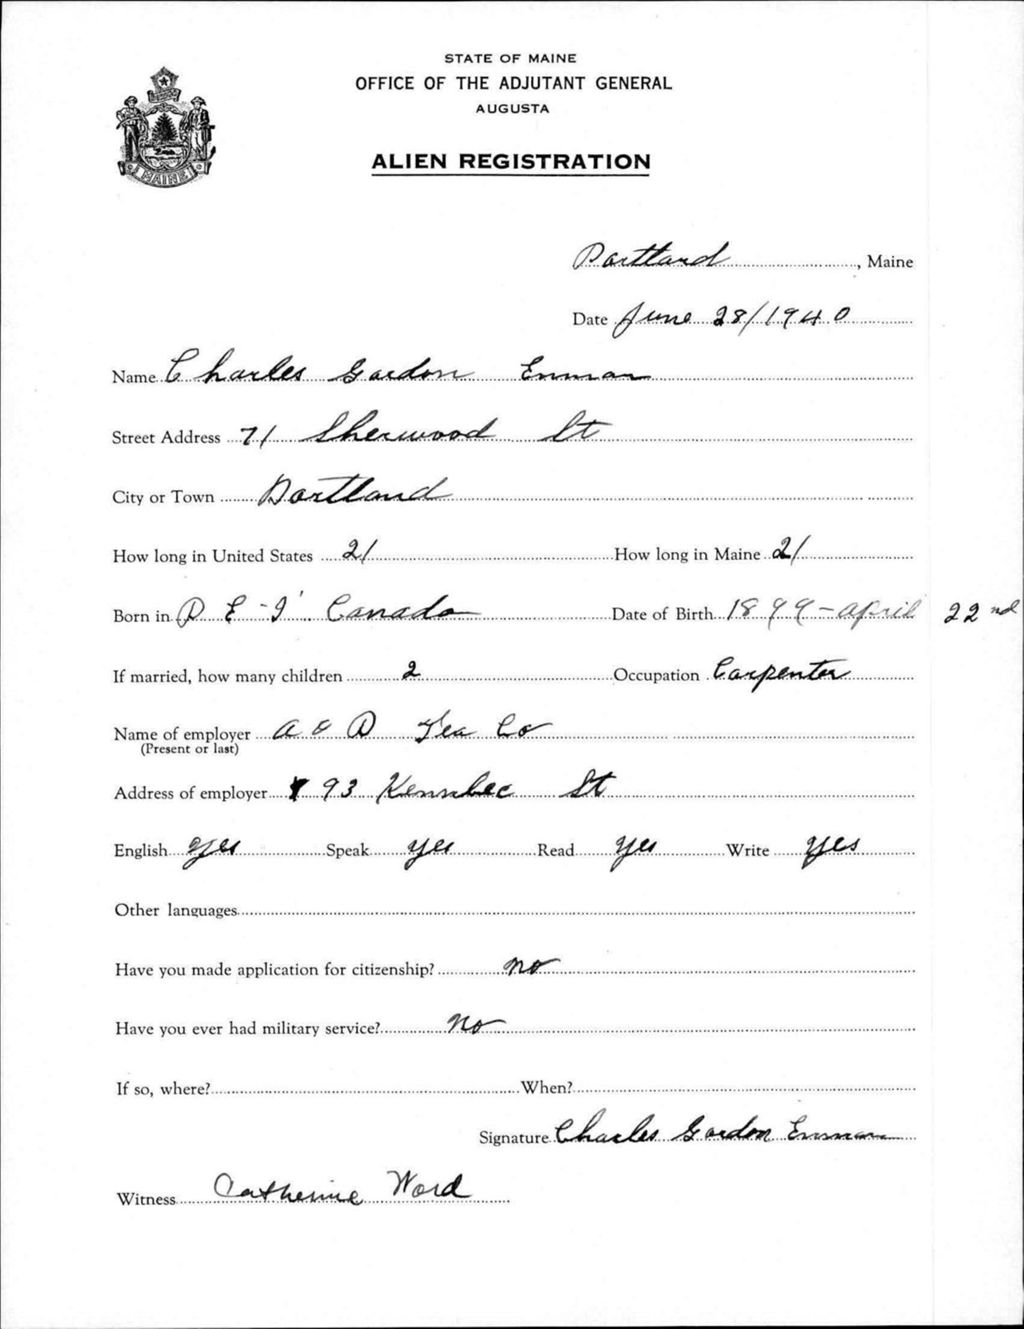 STATE OF MAINE
OFFICE OF THE ADJUTANT GENERAL
AUGUSTA
ALIEN REGISTRATION
MAINE
Portland, Maine
Date June 28/1940
Name Charles Gordon Enman
Street Address 71 Sherwood St
City or Town Portland
How long in United States 21 How long in Maine 21
Born in P E-I' Canada Date of Birth 1899-april 22nd
If married, how many children 2 Occupation Carpenter
Name of employer A & P Tea Co
(Present or last)
Address of employer 93 Kennbec St
English yes Speak yes Read yes Write yes
Other languages
Have you made application for citizenship? no
Have you ever had military service? no
If so, where? When?
Signature Charles Gordon Enman
Witness Catherine Ward